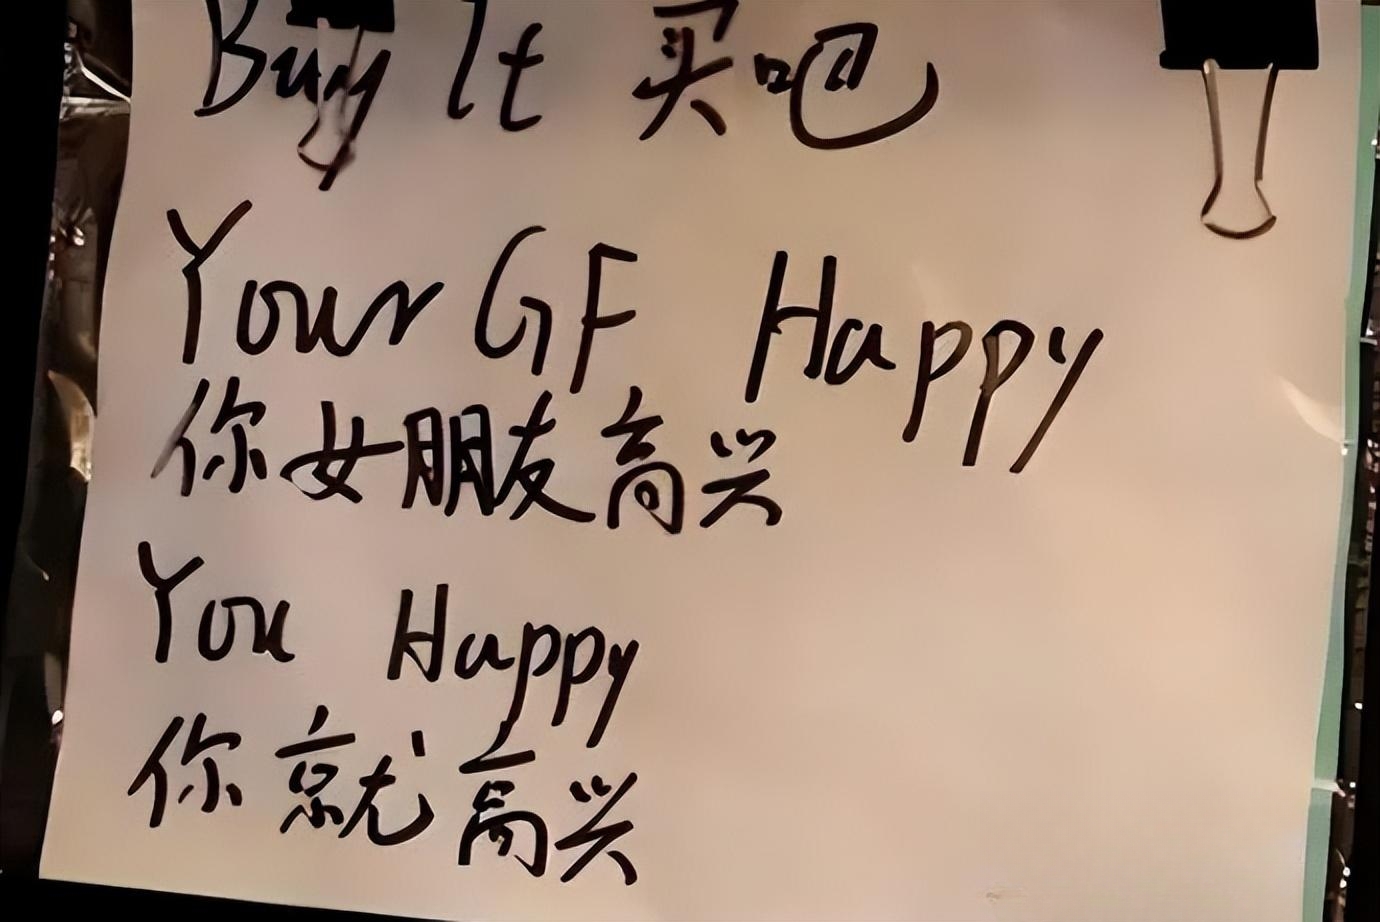 Buy It 买吧
Your GF Happy
你女朋友高兴
You Happy
你就高兴